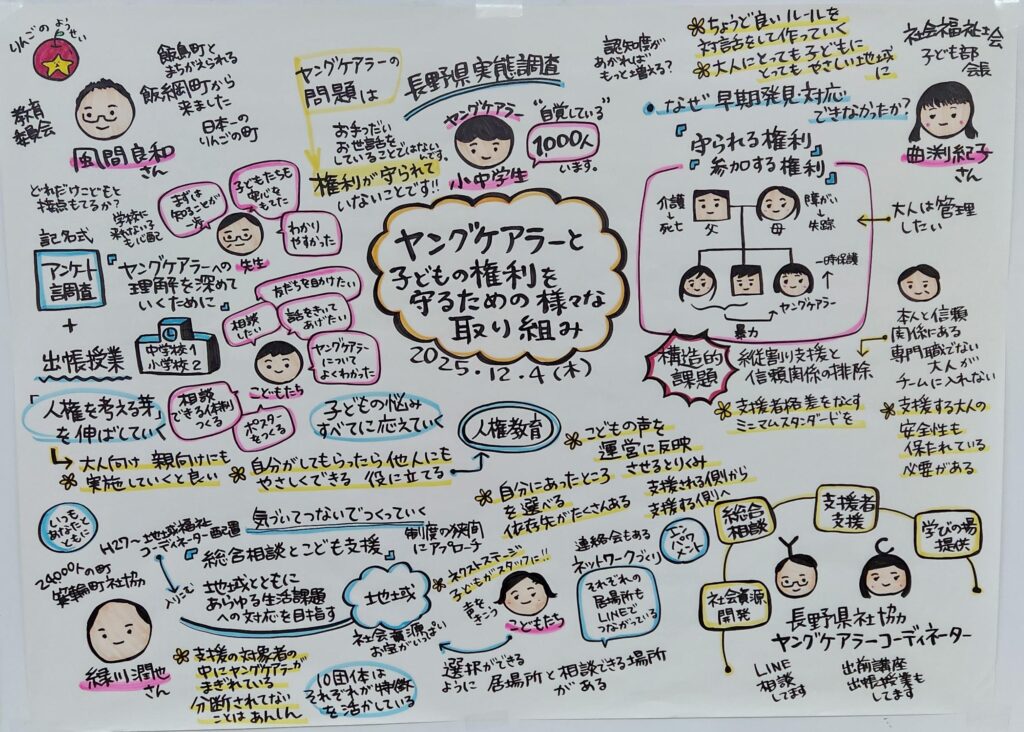 りんごのようせい
教育
委員会
風間良和
さん
飯島町と
まちがえられる
飯綱町から
来ました
日本一の
りんごの町
ヤングケアラーの
問題は
お手つだい
お世話を
していることではないんです。
権利が守られて
いないことです!!
長野県実態調査
ヤングケアラー
小中学生
"自覚している"
1000人
います。
認知度が
あがれば
もっと増える?
ちょうど良いルールを
対話をして作っていく
大人にとっても子どもに
とっても やさしい地域
に
社会福祉士会
子ども部
会長
曲渕紀子
さん
・なぜ 早期発見対応
できなかったか?
『守られる権利』
『参加する権利』
介護
↓
死亡
父
母
障がい
↓
失踪
一時保護
ヤングケアラー
暴力
大人は管理
したい
構造的
課題
縦割り支援と
信頼関係の排除
支援者格差をなくす
ミニマムスタンダードを
本人と信頼
関係にある
専門職でない
大人が
チームに入れない
支援する大人の
安全性も
保たれている
必要がある
どれだけこどもと
接点もてるか?
学校に
来れない子
も心配
まずは
知ることが
一歩
子どもたちも
関心を
もてた
わかり
やすかった
先生
記名式
アンケート
調査
+
出張授業
『ヤングケアラーへの
理解を深めて
いくために』
中学校1
小学校2
友だちを助けたい
相談
したい
話をきいて
あげたい
ヤングケアラー
について
よくわかった
こどもたち
相談
できる体制
つくる
ポスター
をつくる
「人権を考える芽」
を伸ばしていく
大人向け 親向けにも
実施していくと良い
子どもの悩み
すべてに応えていく
自分がしてもらったら他人にも
やさしくできる 役に立てる
人権教育
ヤングケアラーと
子どもの権利を
守るための様々な
取り組み
2025.12.4(木)
こどもの声を
運営に反映
させるとりくみ
自分にあったところ
を選べる
依存先がたくさんある
支援される側から
支援する側へ
エンパワメント
いつも
あなたと
ともに
24000人の町
箕輪町社協
緑川潤也
さん
H27〜地域福祉
コーディネーター配置
気づいてつないでつくっていく
『総合相談とこども支援』
制度の狭間
にアプローチ
地域とともに
あらゆる生活課題
への対応を目指す
地域
社会資源
お宝がいっぱい
支援の対象者の
中にヤングケアラーが
まぎれている
分断されてない
ことは あんしん
10団体は
それぞれが特徴
を活かしている
ネクストステージ
子どもがスタッフに!!
声を
きこう
こどもたち
連絡会もある
ネットワークづくり
それぞれの
居場所も
LINEで
つながっている
選択ができる
ように 居場所と相談できる場所
がある
総合
相談
支援者
支援
学びの場
提供
社会資源
開発
長野県社協
ヤングケアラーコーディネーター
LINE
相談
してます
出前講座
出張授業も
してます